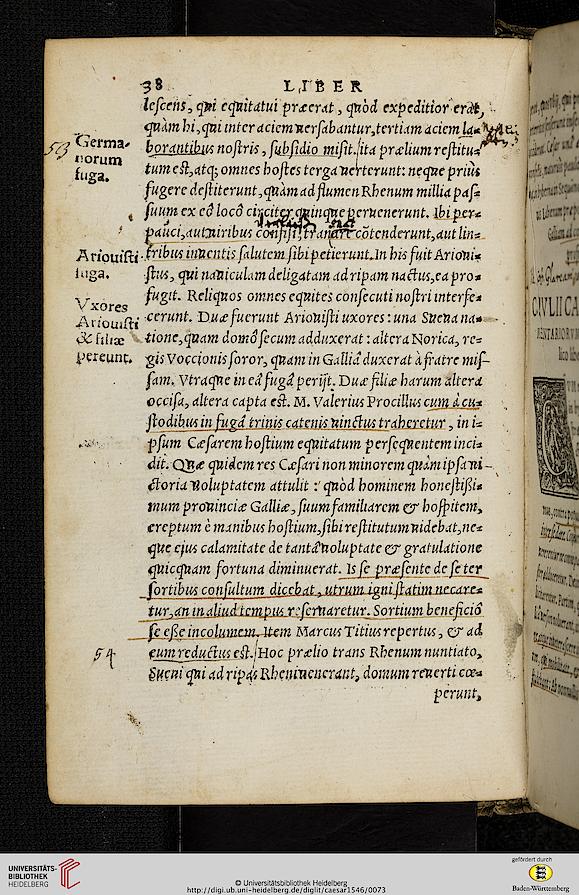 38 LIBER
lescens, qui equitatui præerat, quòd expeditior erat,
quàm hi, qui inter aciem uersabantur, tertiam aciem la=
borantibus nostris, subsidio misit. ita prælium restitu=
tum est, atq; omnes hostes terga uerterunt: neque priùs
fugere destiterunt, quàm ad flumen Rhenum millia pas=
suum ex eô locô circiter quinque peruenerunt. Ibi per=
pauci, aut uiribus confisi, tranare cōtenderunt, aut lin=
tribus inuentis salutem sibi petierunt. In his fuit Arioui=
stus, qui nauiculam deligatam ad ripam nactus, ea pro=
fugit. Reliquos omnes equites consecuti nostri interfe=
cerunt. Duæ fuerunt Ariouisti uxores: una Sueua na=
tione, quam domô secum adduxerat: altera Norica, re=
gis Voccionis soror, quam in Galliâ duxerat à fratre mis=
sam. Vtraque in eâ fugâ perijt. Duæ filiæ harum altera
occisa, altera capta est. M. Valerius Procillus cum à cu=
stodibus in fugâ trinis catenis uinctus traheretur, in i=
psum Cæsarem hostium equitatum persequentem inci=
dit. Quæ quidem res Cæsari non minorem quàm ipsa ui=
ctoria uoluptatem attulit: quòd hominem honestißi=
mum prouinciæ Galliæ, suum familiarem & hospitem,
ereptum è manibus hostium, sibi restitutum uidebat, ne=
que ejus calamitate de tantâ uoluptate & gratulatione
quicquam fortuna diminuerat. Is se præsente de se ter
sortibus consultum dicebat, utrum igni statim necare=
tur, an in aliud tempus reseruaretur. Sortium beneficiô
se eße incolumem. Item Marcus Titius repertus, & ad
eum reductus est. Hoc prælio trans Rhenum nuntiato,
Sueui qui ad ripas Rheni uenerant, domum reuerti cœ=
perunt,
53
Germa=
norum
fuga.
Ariouisti
fuga.
Vxores
Ariouisti
& filiæ
pereunt.
54
UNIVERSITÄTS-
BIBLIOTHEK
HEIDELBERG
© Universitätsbibliothek Heidelberg
http://digi.ub.uni-heidelberg.de/diglit/caesar1546/0073
gefördert durch
Baden-Württemberg